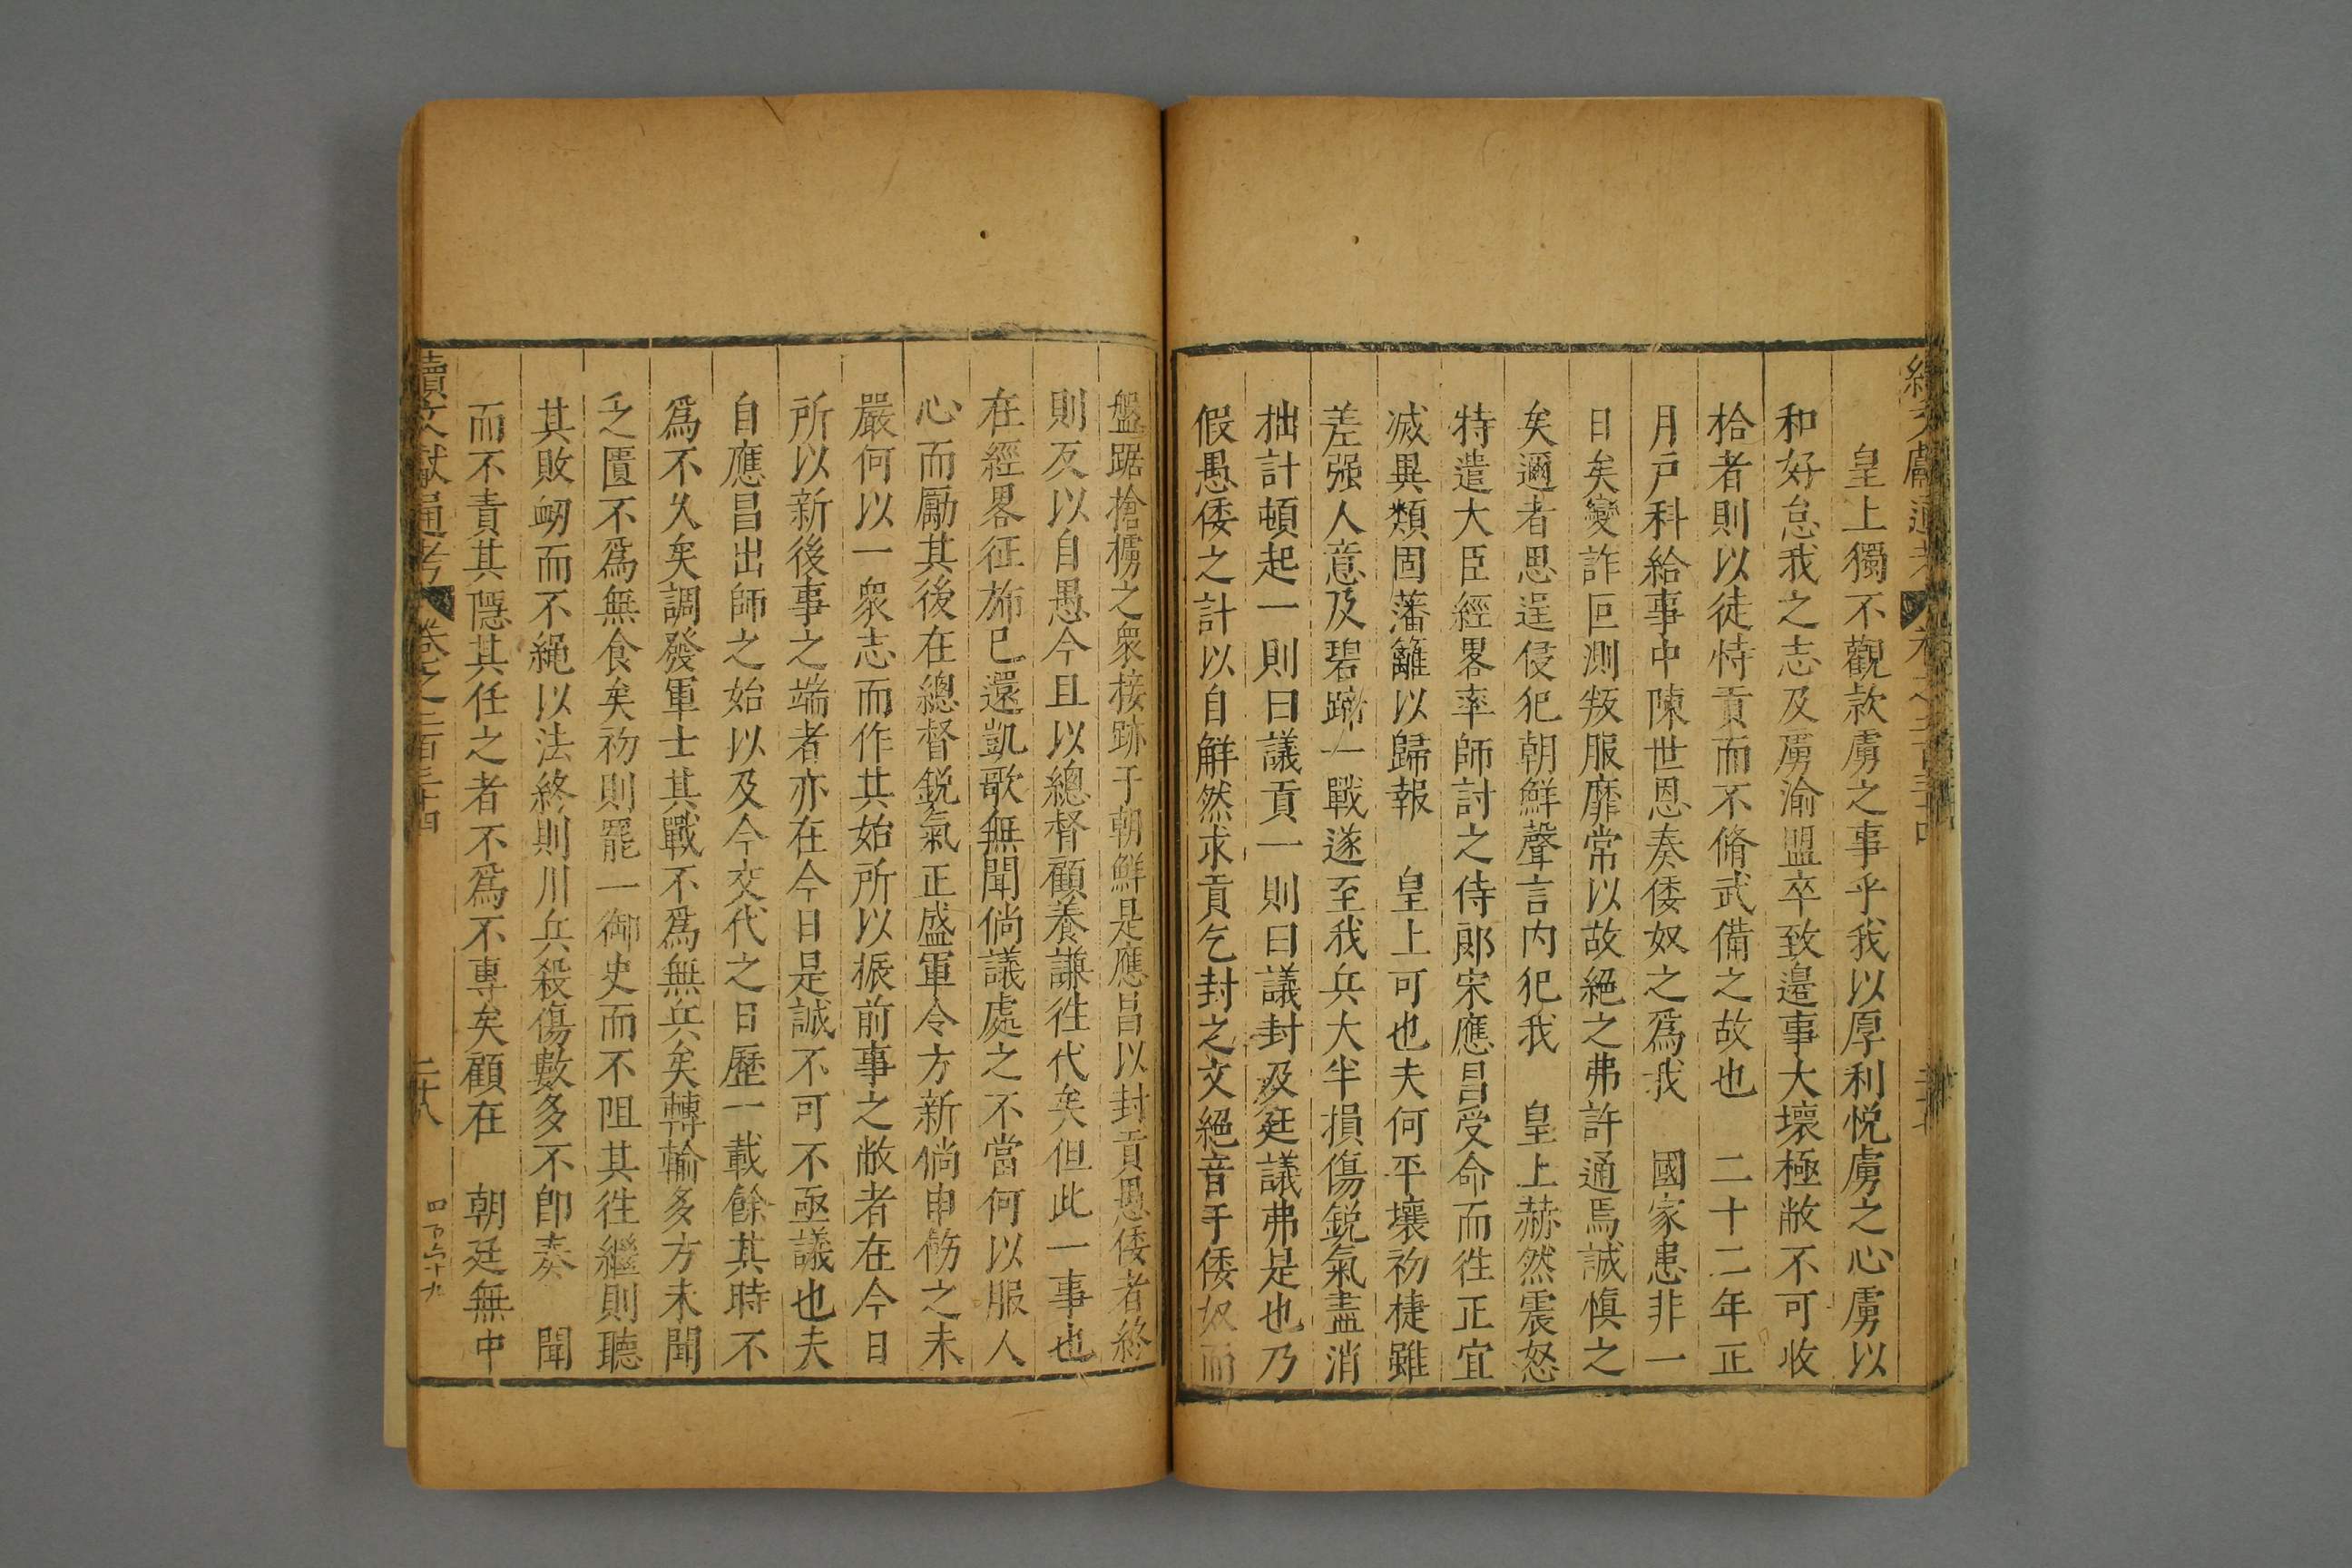 皇上獨不觀款虜之事乎我以厚利悅虜之心虜以
和好怠我之志及虜渝盟卒致邉事大壞極敝不可收
拾者則以徒恃貢而不脩武備之故也 二十二年正
月戸科給事中陳世恩奏倭奴之爲我 國家患非一
日矣變詐叵測叛服靡常以故絕之弗許通焉誠慎之
矣邇者思逞侵犯朝鮮聲言内犯我 皇上赫然震怒
特遣大臣經畧率師討之侍郎宋應昌受命而徃正宜
滅異類固藩籬以歸報 皇上可也夫何平壤初捷雖
差强人意及碧蹄一戰遂至我兵大半損傷鋭氣盡消
拙計頓起一則曰議貢一則曰議封及廷議弗是也乃
假愚倭之計以自解然求貢乞封之文絕音于倭奴而
盤踞搶擄之衆接跡于朝鮮是應昌以封貢愚倭者終
則反以自愚今且以總督顧養謙徃代矣但此一事也
在經畧征斾已還凱歌無聞倘議處之不當何以服人
心而勵其後在總督鋭氣正盛軍令方新倘申飭之未
嚴何以一衆志而作其始所以振前事之敝者在今日
所以新後事之端者亦在今日是誠不可不亟議也夫
自應昌出師之始以及今交代之日歷一載餘其時不
爲不久矣調發軍士其戰不爲無兵矣轉輸多方未聞
乏匱不爲無食矣初則罷一御史而不阻其徃繼則聽
其敗衂而不繩以法終則川兵殺傷數多不卽奏 聞
而不責其隱其任之者不爲不專矣顧在 朝廷無中
續文獻通考 卷之二百三十四 二十八
四百六十九